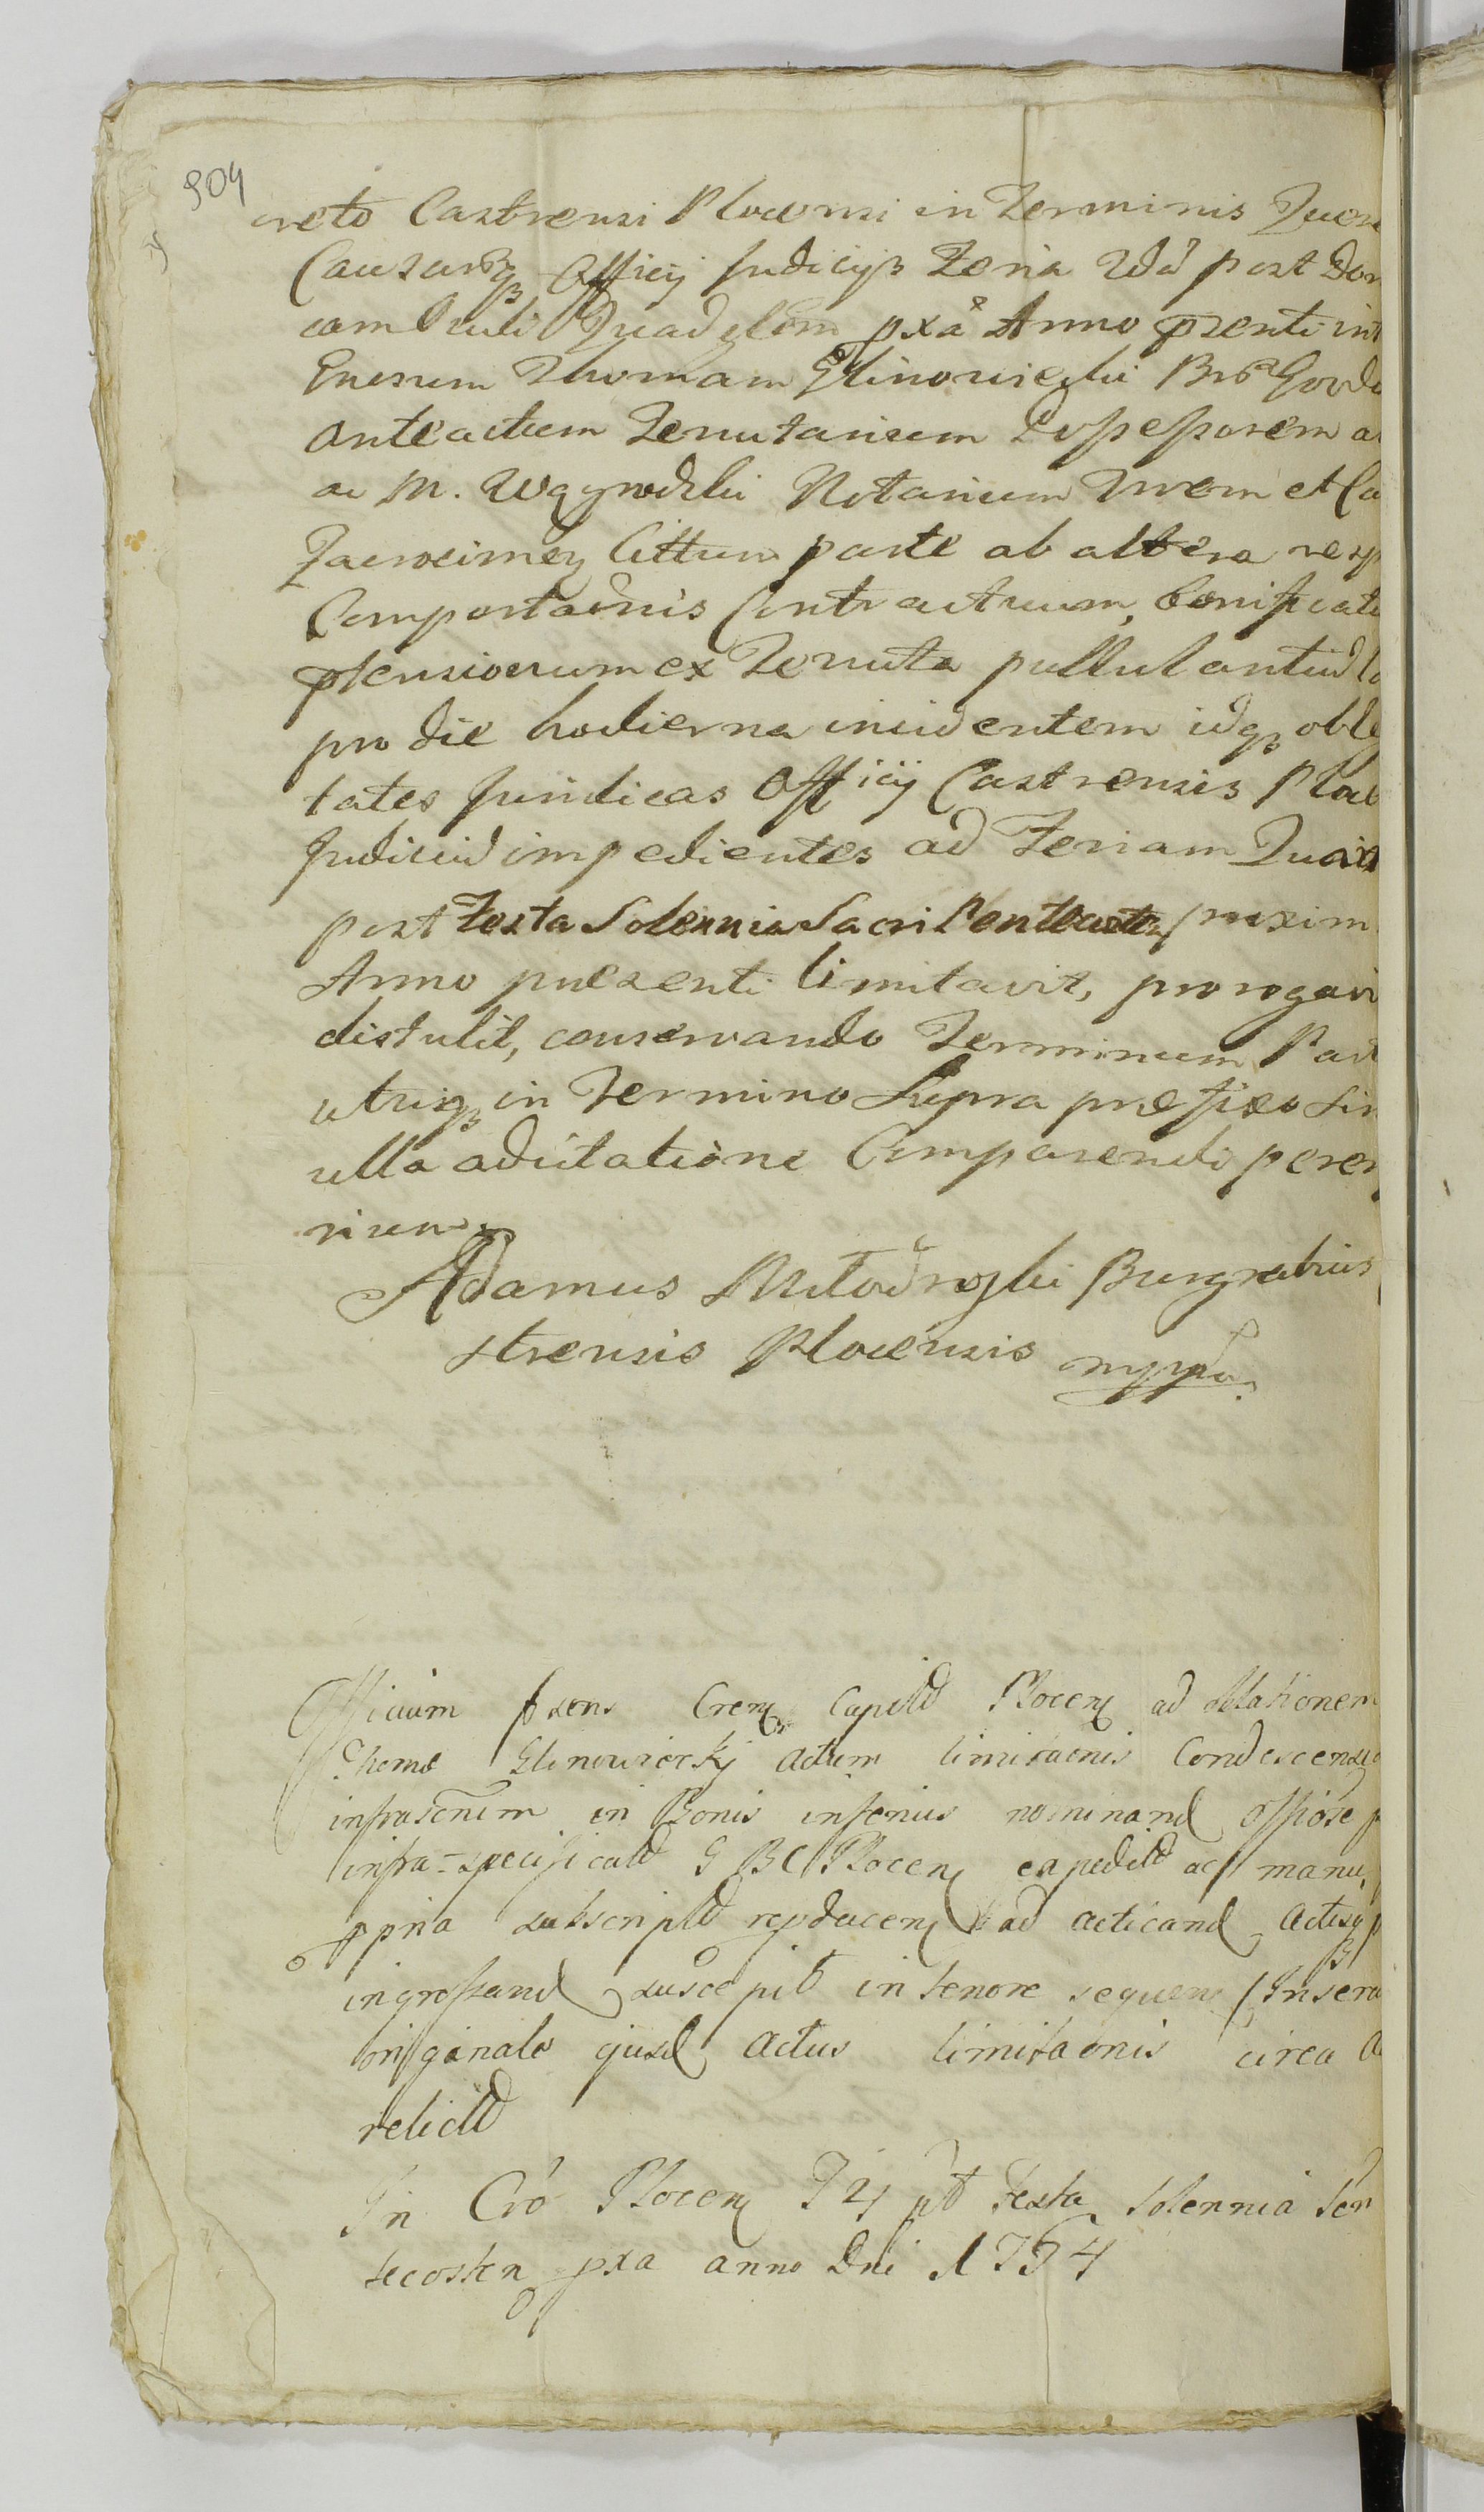 904
creto Castrensi Plocensi in Terminis Quer
Causarūqȝ Officij Judicijȝ Feria 2dā post Dom
cam Oculi Quadglem pxā Anno prenti int
Gnerum Thomam Glinowiecki
anteactum Tenutarium Possessorem a
ac M. Notarium et Ca
Cittum parte ab altera resp
Comportaōnis Contractuum, bonificati
ptensionum ex Tenuta pullulantiū
pro die hodierna incidentem idqȝ ob
tates Juridicas Officij Castrensis Ploc
Judiciū impedientes ad Feriam
post Festa Solennia Sacri Pentecostes proxim
Anno praesenti limitavit, prorogavi
distulit, conservando Terminum Part
utriqȝ in Termino Supra praefixo sin
ulla adcitatione Comparendi perem
rium
Adamus Miłodroski Burgrabius
strensis Plocensis mppa
Officium prens Crens Capitłd Plocens ad oblationem
Thomæ Glinowiecki actum limitaonis Condescensi
infrascrum in Bonis inferius nominand officiose p
infra-specificatd G B C Plocens expeditd ac manu
ppria subscriptd reproducens ad acticand Actisqȝ p
ingrossand suscepit in tenore sequens (Insera
originale ejusd Actus limitaonis circa A
relictd
In Cró Plocens F 4 pt Festa Solennia Pen
tecosten pxa anno Dni 1754